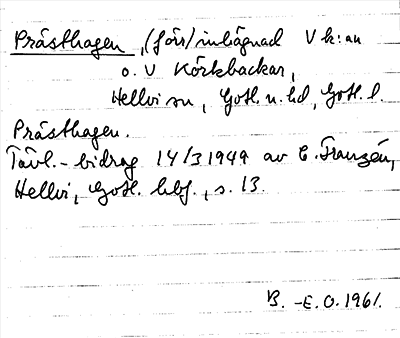 Prästhagen, (förr) inhägnad V k:an
o. V Körkbackar,
Hellvi sn, Gotl. n. hd, Gotl. l.
Prästhagen.
Tävl.-bidrag 14/3 1949 av E. Franzén,
Hellvi, Gotl. hbf., s. 13.
B. -E. O. 1961.